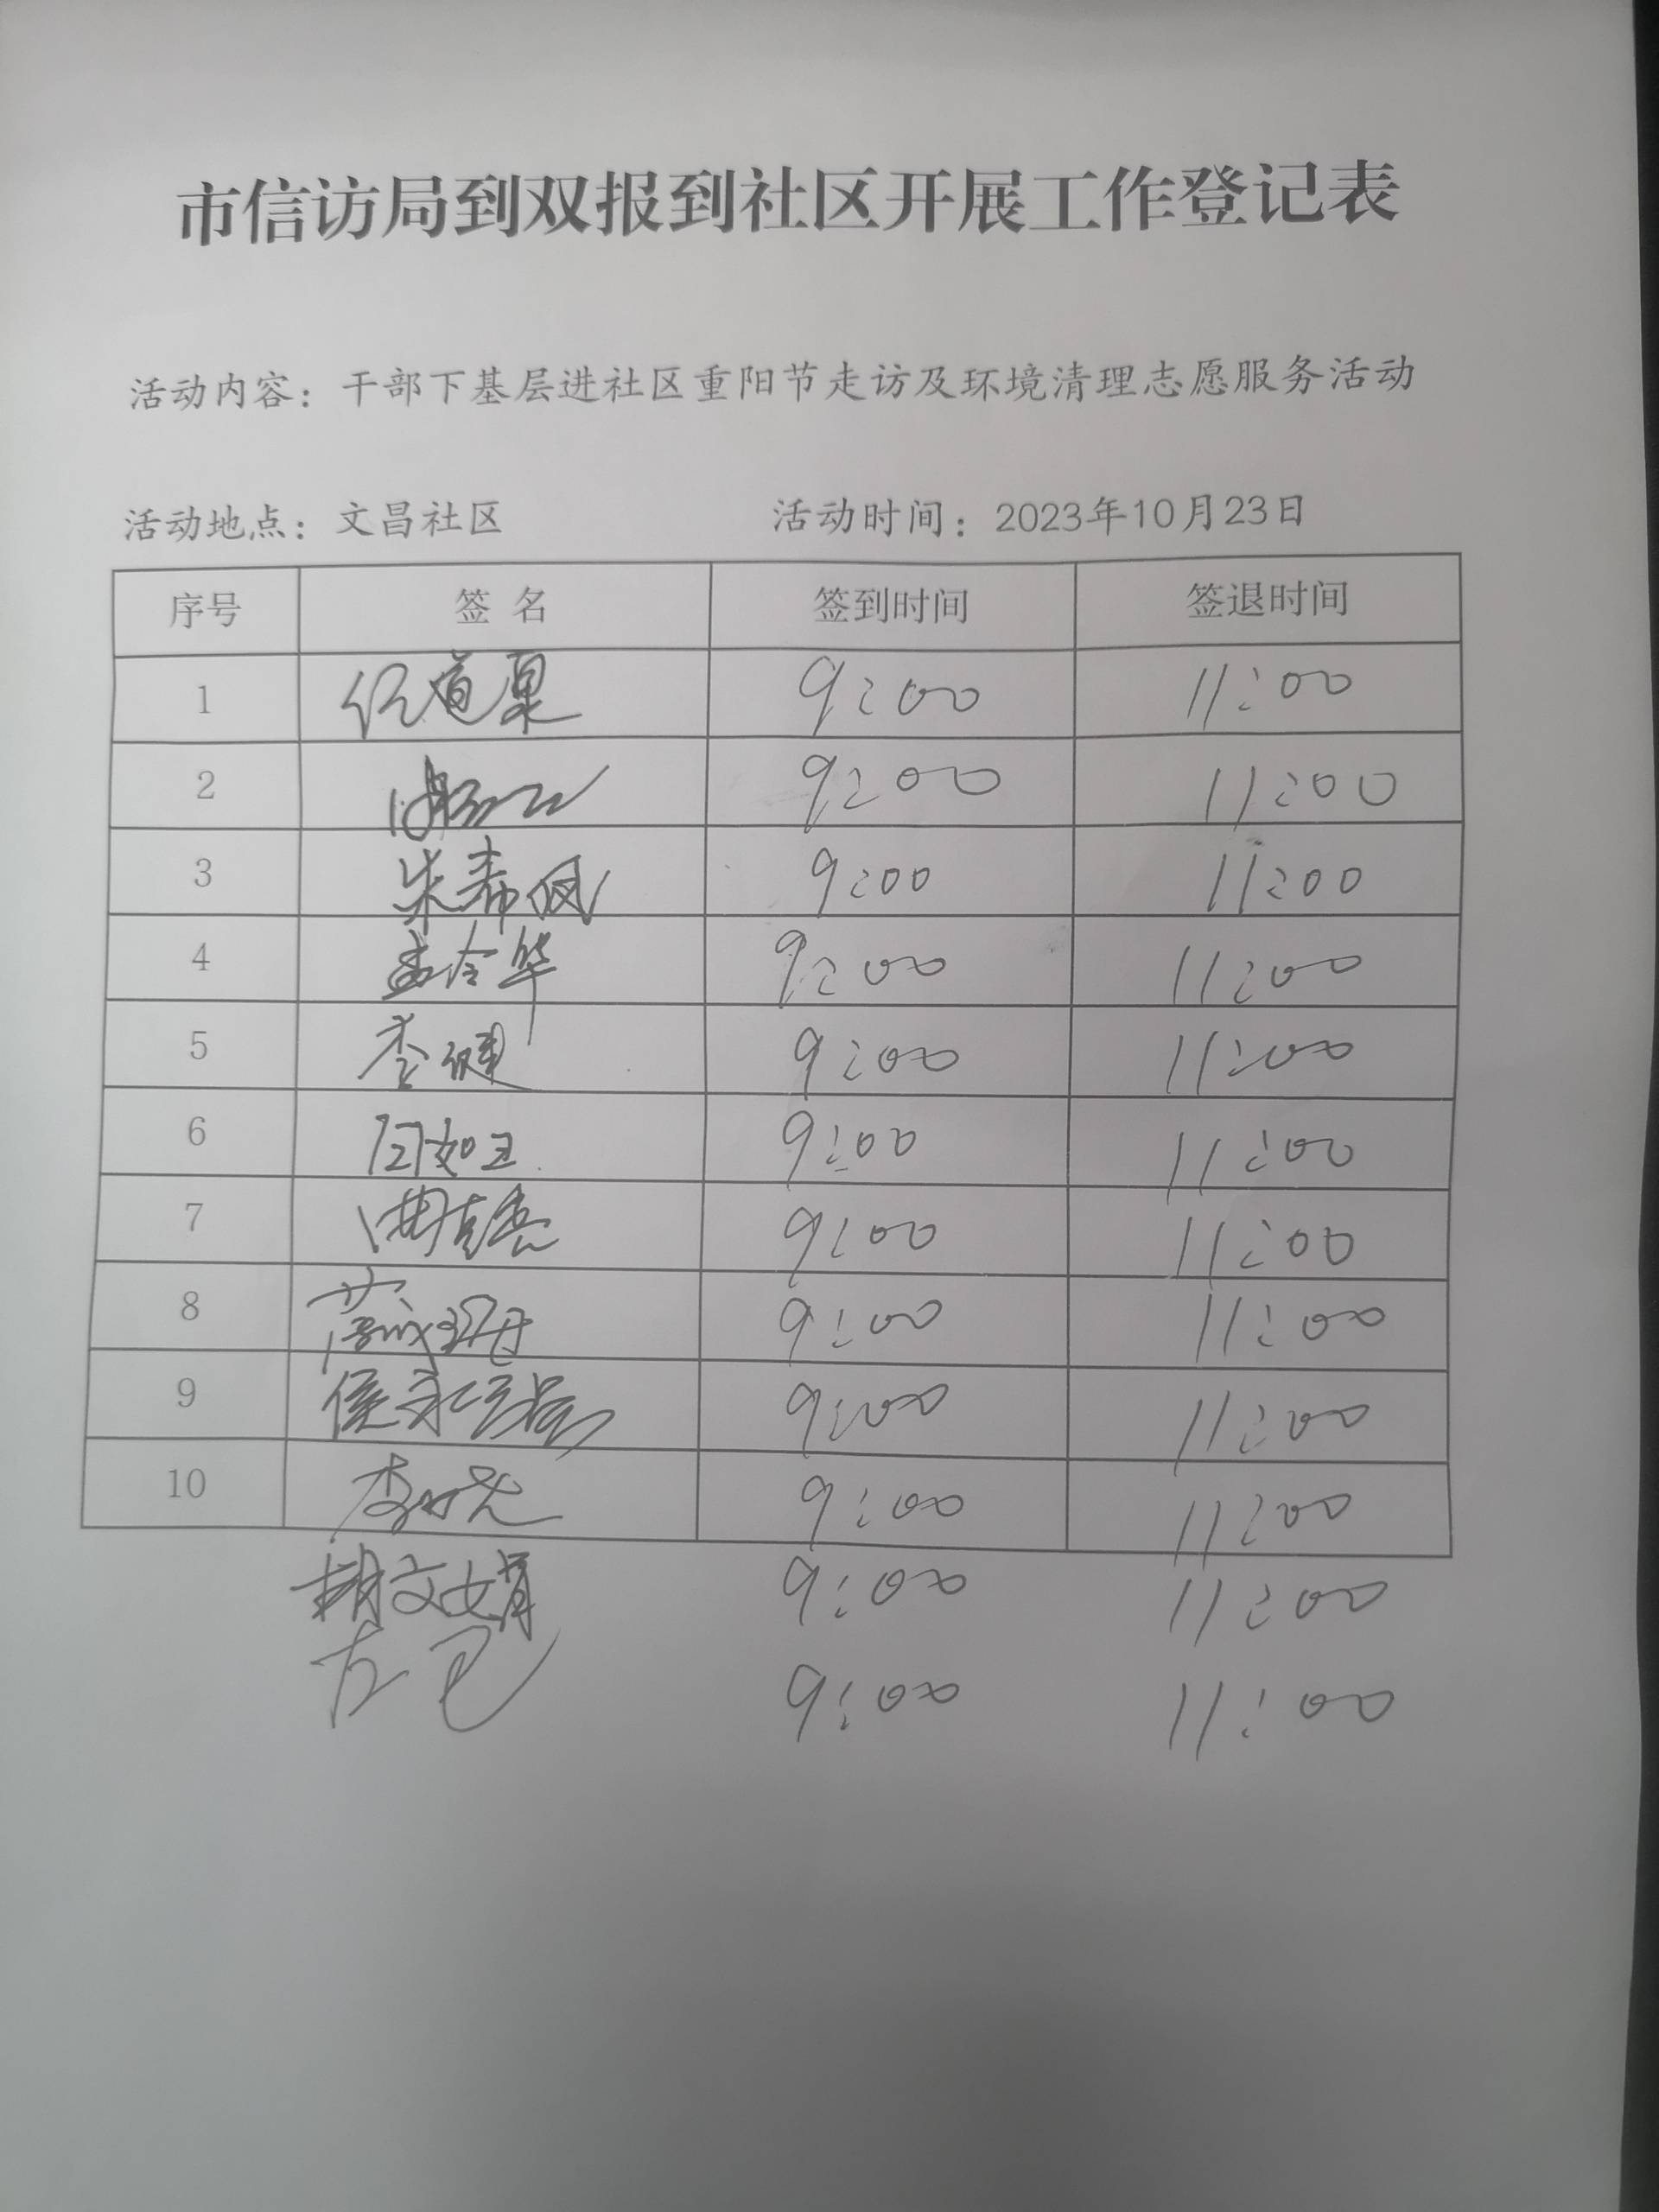 市信访局到双报到社区开展工作登记表
活动内容：干部下基层进社区重阳节走访及环境清理志愿服务活动
活动地点：文昌社区 活动时间：2023年10月23日
序号 签 名 签到时间 签退时间
1 9:00 11:00
2 9:00 11:00
3 朱希凤 9:00 11:00
4 9:00 11:00
5 李健 9:00 11:00
6 闫如玉 9:00 11:00
7 9:00 11:00
8 9:00 11:00
9 9:00 11:00
10 9:00 11:00
胡文婧 9:00 11:00
9:00 11:00